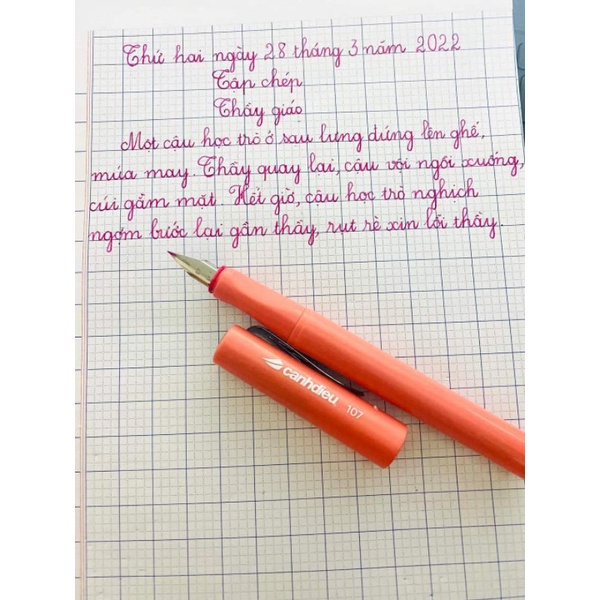 Thứ hai ngày 28 tháng 3 năm 2022
Tập chép
Thầy giáo
Một cậu học trò ở sau lưng đứng lên ghế,
múa may. Thầy quay lại, cậu vội ngồi xuống,
cúi gằm mặt. Hết giờ, cậu học trò nghịch
ngợm bước lại gần thầy, rụt rè xin lỗi thầy.
canhdieu 107